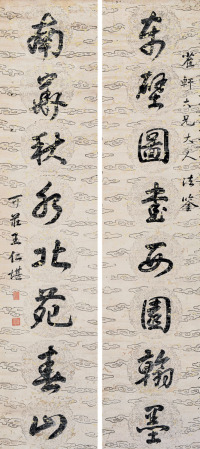 雀軒六兄大人法鑒
東壁圖書西園翰墨
南華秋水北苑春山
可莊王仁堪